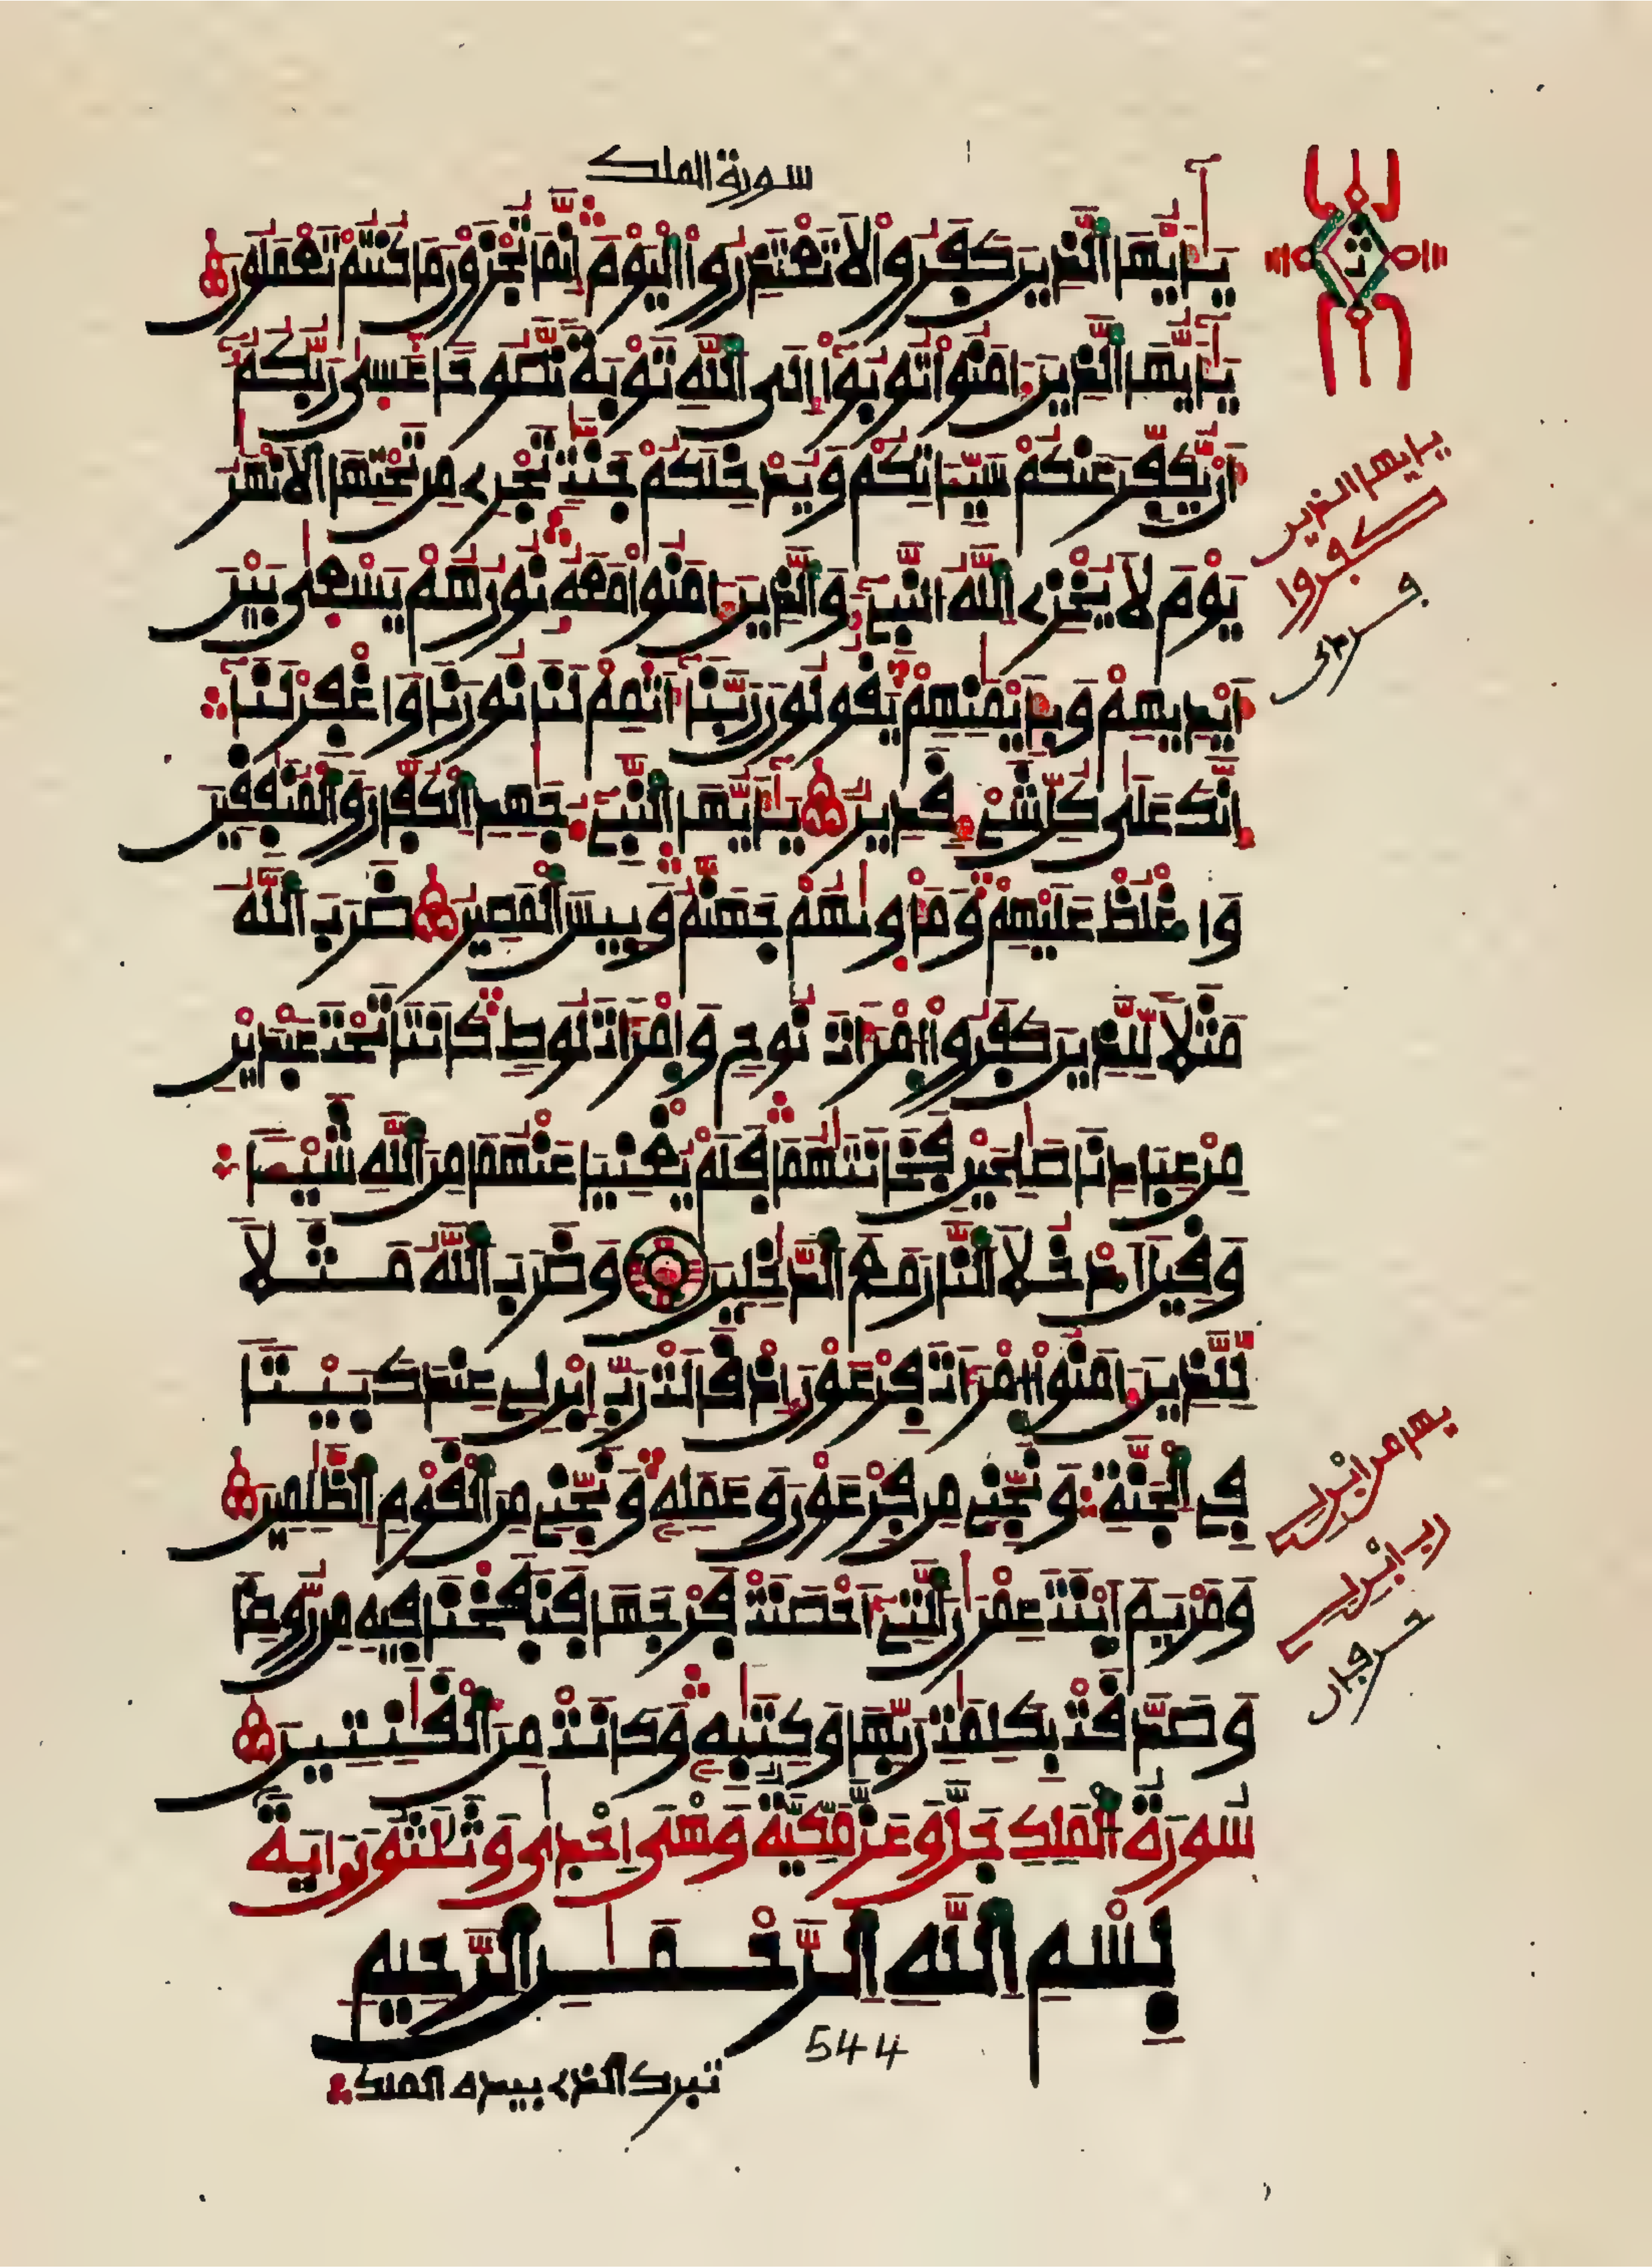 سورة الملك
يَٰٓأَيُّهَا اَ۬لذِينَ كَفَرُواْ لَا تَعْتَذِرُواْ اُ۬لْيَوْمَ إِنَّمَا تُجْزَوْنَ مَا كُنتُمْ تَعْمَلُونَ
يَٰٓأَيُّهَا اَ۬لذِينَ ءَامَنُواْ تُوبُوٓاْ إِلَى اَ۬للَّهِ تَوْبَةٗ نَّصُوحاً عَسَىٰ رَبُّكُمُۥٓ
أَنْ يُّكَفِّرَ عَنكُمْ سَيِّـَٔاتِكُمْ وَيُدْخِلَكُمْ جَنَّٰتٖ تَجْرِے مِن تَحْتِهَا اَ۬لَانْهَٰرُ
يَوْمَ لَا يُخْزِے اِ۬للَّهُ اُ۬لنَّبِےٓءَ وَالذِينَ ءَامَنُواْ مَعَهُۥ نُورُهُمْ يَسْعَىٰ بَيْنَ
أَيْدِيهِمْ وَبِأَيْمَٰنِهِمْ يَقُولُونَ رَبَّنَآ أَتْمِمْ لَنَا نُورَنَا وَاغْفِرْ لَنَآ
إِنَّكَ عَلَىٰ كُلِّ شَےْءٖ قَدِيرٞ يَٰٓأَيُّهَا اَ۬لنَّبِےٓءُ جَٰهِدِ اِ۬لْكُفَّارَ وَالْمُنَٰفِقِينَ
وَاغْلُظْ عَلَيْهِمْ وَمَأْوَىٰهُمْ جَهَنَّمُ وَبِيسَ اَ۬لْمَصِيرُ ضَرَبَ اَ۬للَّهُ
مَثَلاٗ لِّلذِينَ كَفَرُواْ اُ۪مْرَأَتَ نُوحٖ وَامْرَأَتَ لُوطٖ كَانَتَا تَحْتَ عَبْدَيْنِ
مِنْ عِبَادِنَا صَٰلِحَيْنِ فَخَانَتَٰهُمَا فَلَمْ يُغْنِيَا عَنْهُمَا مِنَ اَ۬للَّهِ شَيْـٔاٗ
وَقِيلَ اَ۟دْخُلَا اَ۬لنَّارَ مَعَ اَ۬لدَّٰخِلِينَ وَضَرَبَ اَ۬للَّهُ مَثَلاٗ
لِّلذِينَ ءَامَنُواْ اُ۪مْرَأَتَ فِرْعَوْنَ إِذْ قَالَتْ رَبِّ اِ۪بْنِ لِے عِندَكَ بَيْتاٗ
فِے اِ۬لْجَنَّةِ وَنَجِّنِے مِن فِرْعَوْنَ وَعَمَلِهِۦ وَنَجِّنِے مِنَ اَ۬لْقَوْمِ اِ۬لظَّٰلِمِينَ
وَمَرْيَمَ اَ۪بْنَتَ عِمْرَٰنَ اَ۬لتِےٓ أَحْصَنَتْ فَرْجَهَا فَنَفَخْنَا فِيهِ مِن رُّوحِنَا
وَصَدَّقَتْ بِكَلِمَٰتِ رَبِّهَا وَكِتَٰبِهِۦ وَكَانَتْ مِنَ اَ۬لْقَٰنِتِينَ
سُورَةُ الْمُلْكِ جَلَّ وَعَزَّ مَكِّيَّةٌ وَهْيَ إِحْدَىٰ وَثَلَٰثُونَ ايَةً
بِسْمِ اِ۬للَّهِ اِ۬لرَّحْمَٰنِ اِ۬لرَّحِيمِ
544
تبرك الذے بيده الملك
يايها الذين
كفروا
يهم من ابن لے
رب ابن لے